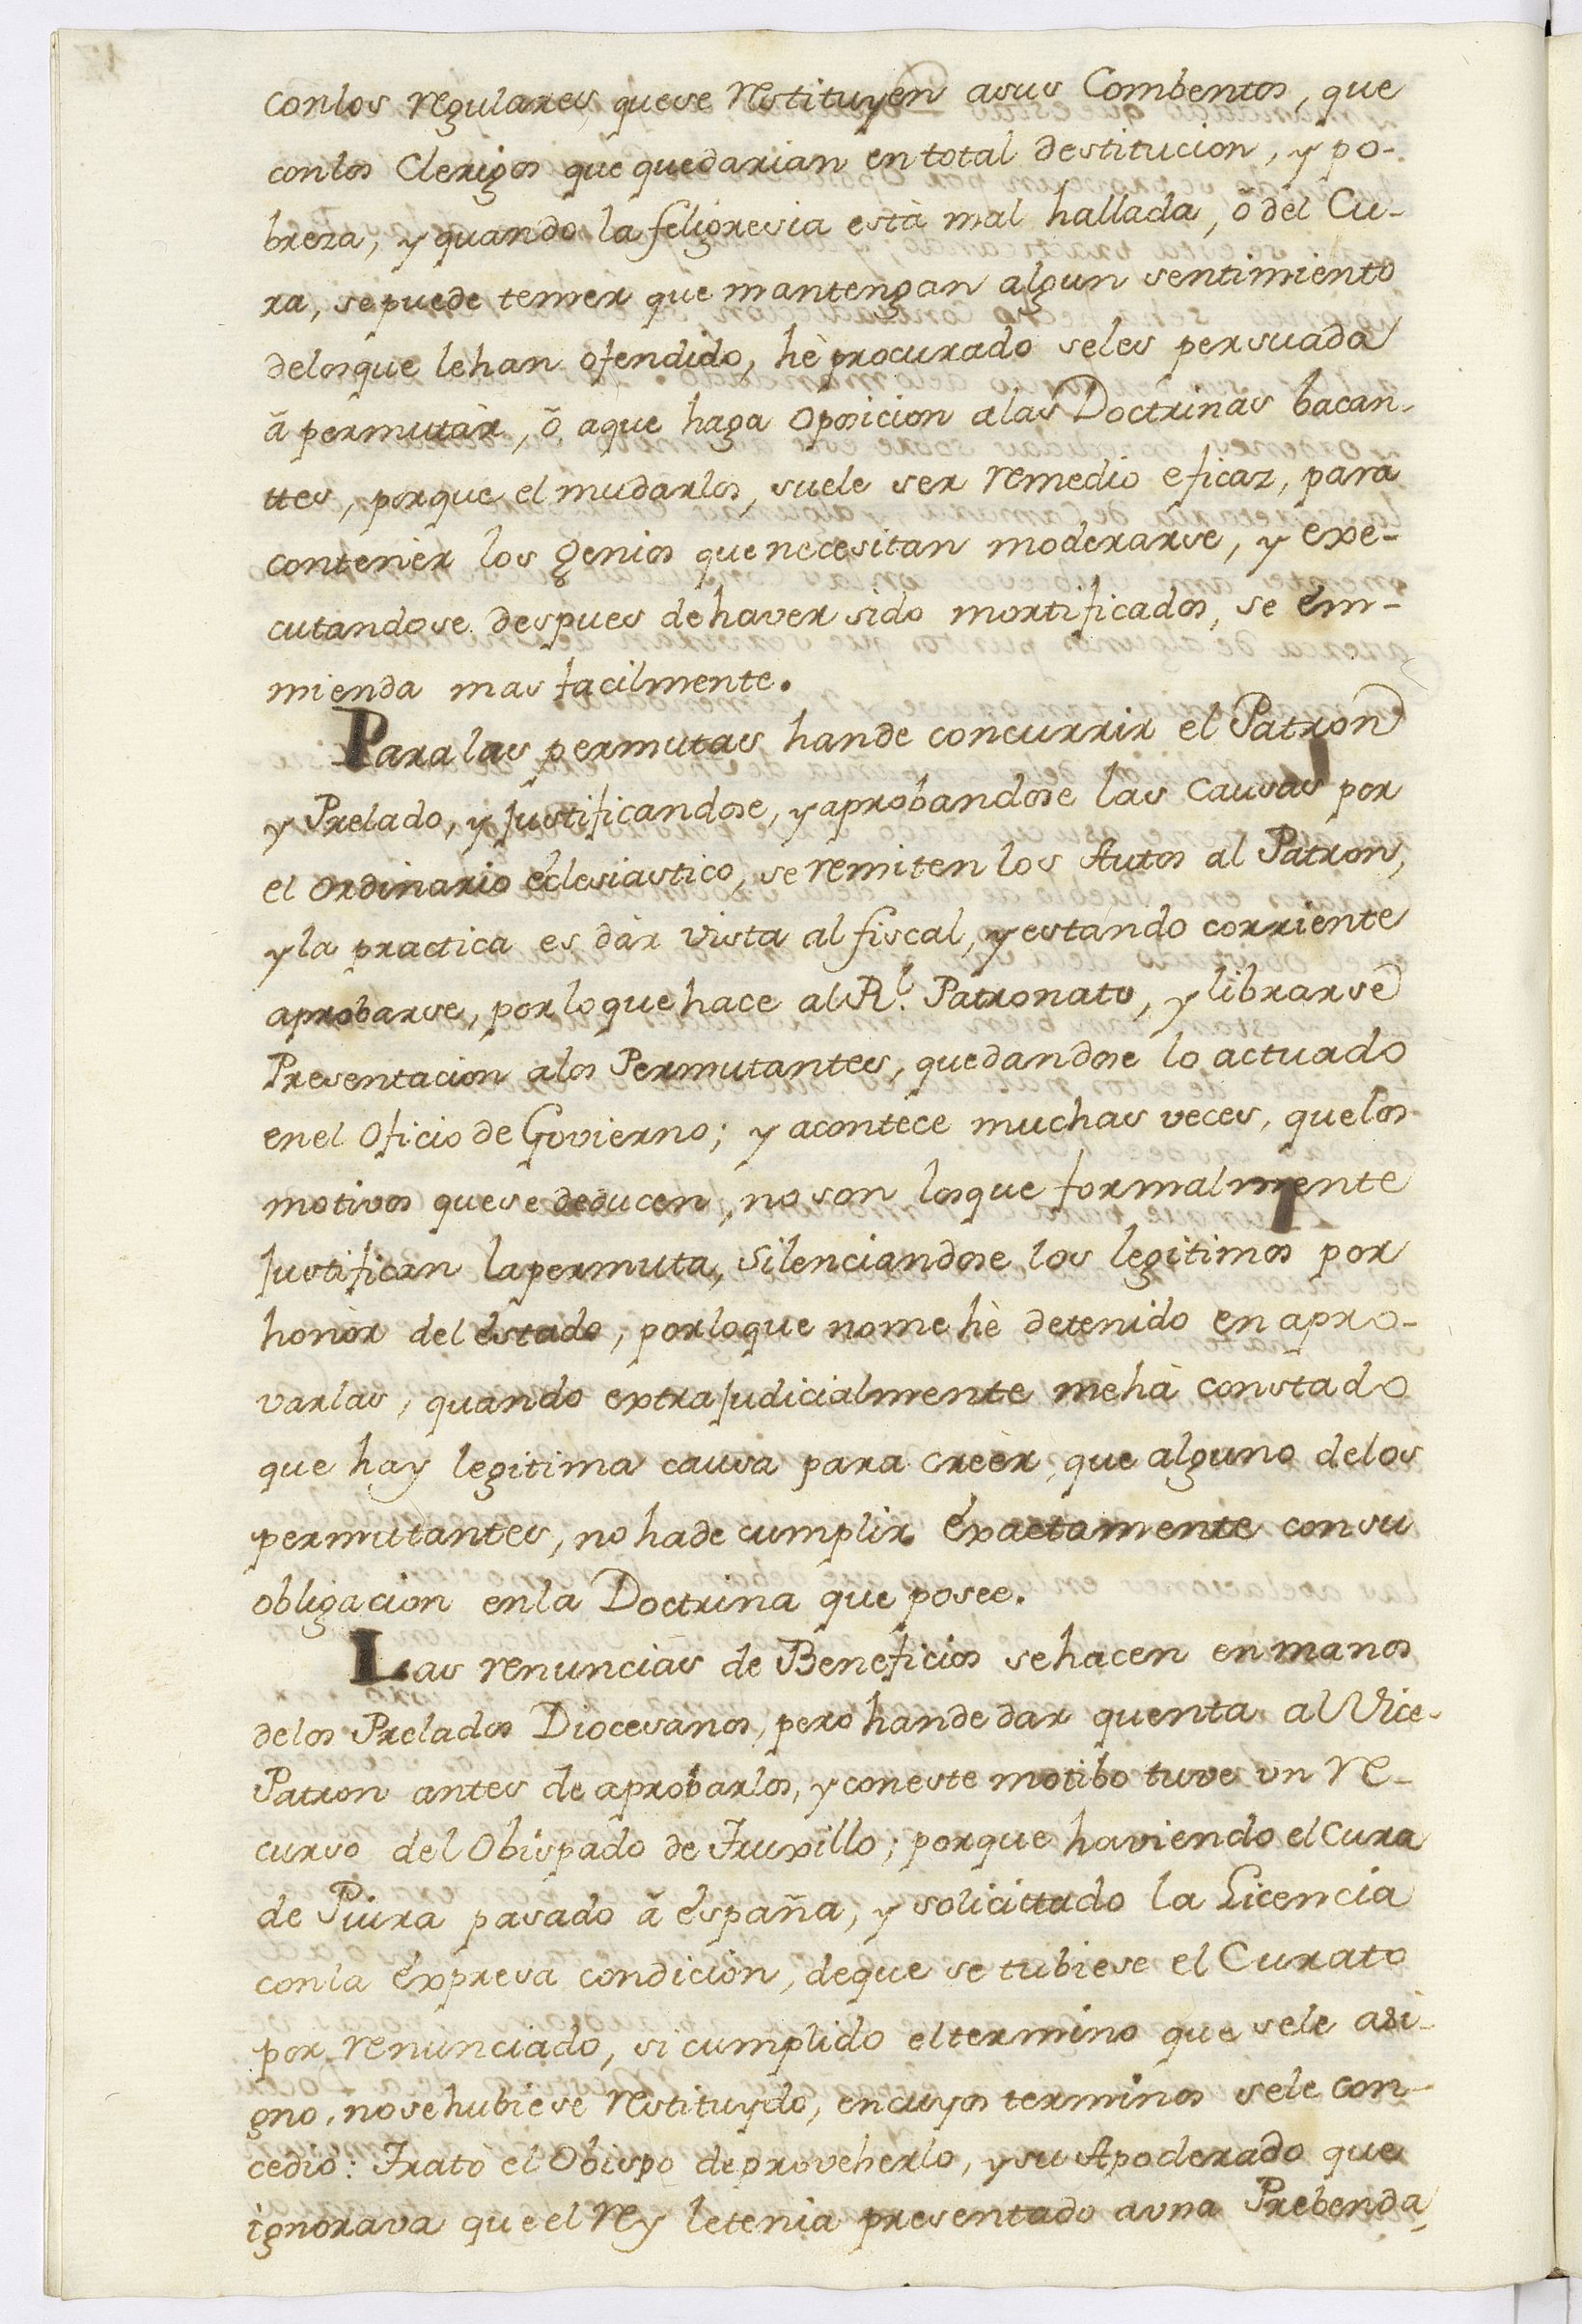 con los regulares, que se restituyen a sus Combentos, que
con los Clerigos que quedarian en total destitucion, y po-
breza, y quando la feligresia està mal hallada, ò del Cu-
ra, se puede temer que mantengan algun sentimiento
de los que le han ofendido, hè procurado se les persuada
à permutàr, ò a que haga oposicion a las Doctrinas bacan-
ttes, porque el mudarlos, suele ser remedio eficaz, para
contenèr los genios que necesitan moderarse, y exe-
cutandose despues de haver sido mortificados, se èm-
mienda mas facilmente.
Para las permutas han de concurrir el Patron
y Prelado, y justificandose, y aprobandose las causas por
el ordinario èclesiastico, se remiten los Autos al Patron,
y la practica es dàr vista al fiscal, y estando corriente
aprobarse, por lo que hace al Rl. Patronato, y librarse
Presentacion a los Permutantes, quedandose lo actuado
en el oficio de Govierno; y acontece muchas veces, que los
motivos que se deducen, no son los que formalmente
justifican la permuta, silenciandose los legitimos por
honòr del èstado, por lo que no me hè detenido en apro-
varlas, quando extrajudicialmente me hà constado
que hay legitima causa para creèr, que alguno de los
permutantes, no ha de cumplir èxactamente con su
obligacion en la Doctrina que posee.
Las renuncias de Beneficios se hacen en manos
de los Prelados Diocesanos, pero han de dar quenta al Vice-
Patron antes de aprobarlos, y con este motibo tuve un re-
curso del Obispado de Truxillo; porque haviendo el cura
de Piura pasado à èspaña, y solicittado la Licencia
con la èxpresa condicion, de que se tubiese el Curato
por renunciado, si cumplido el termino que se le asi-
gno, no se hubiese restituydo, en cuyos terminos se le con-
cediò: Tratò el Obispo de proveherlo, y su Apoderado que
ignorava que el rey le tenia presentado a una Prebenda,